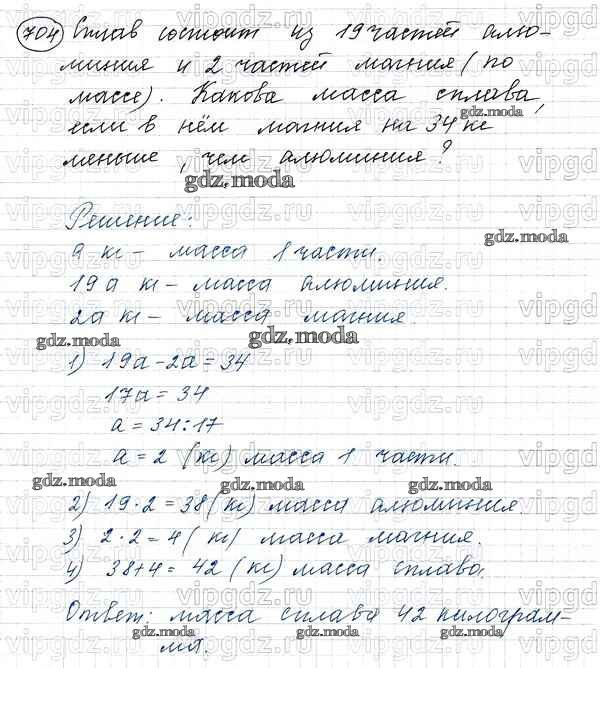 704 Сплав состоит из 19 частей алю-
миния и 2 частей магния (по
массе). Какова масса сплава,
если в нём магния на 34 кг
меньше, чем алюминия?
Решение:
а кг – масса 1 части.
19а кг – масса алюминия.
2а кг – масса магния.
1) 19а-2а=34
17а=34
а=34:17
а=2 (кг) масса 1 части.
2) 19·2=38 (кг) масса алюминия.
3) 2·2=4 (кг) масса магния.
4) 38+4=42 (кг) масса сплава.
Ответ: масса сплава 42 килограм-
ма.
gdz.moda
vipgdz.ru